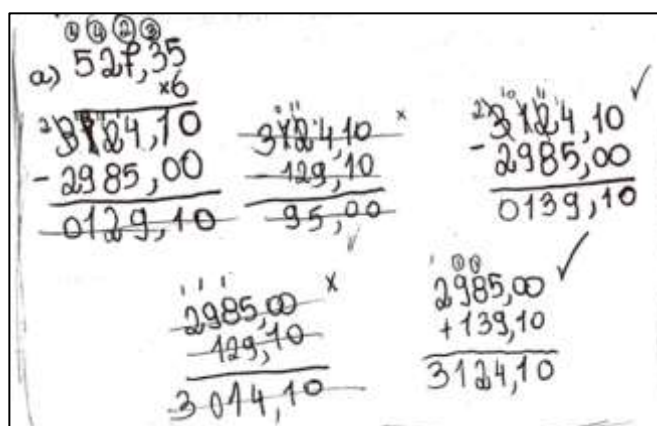 ④ ④ ② ③
a) 527,35
×6
2 3124,10
- 2985,00
0129,10
0 11
3124,10 ×
129,10
95,00
10 11
2 3124,10 ✓
- 2985,00
0139,10
1 1 1
2985,00 ×
129,10
3014,10
2985,00 ✓
+139,10
3124,10